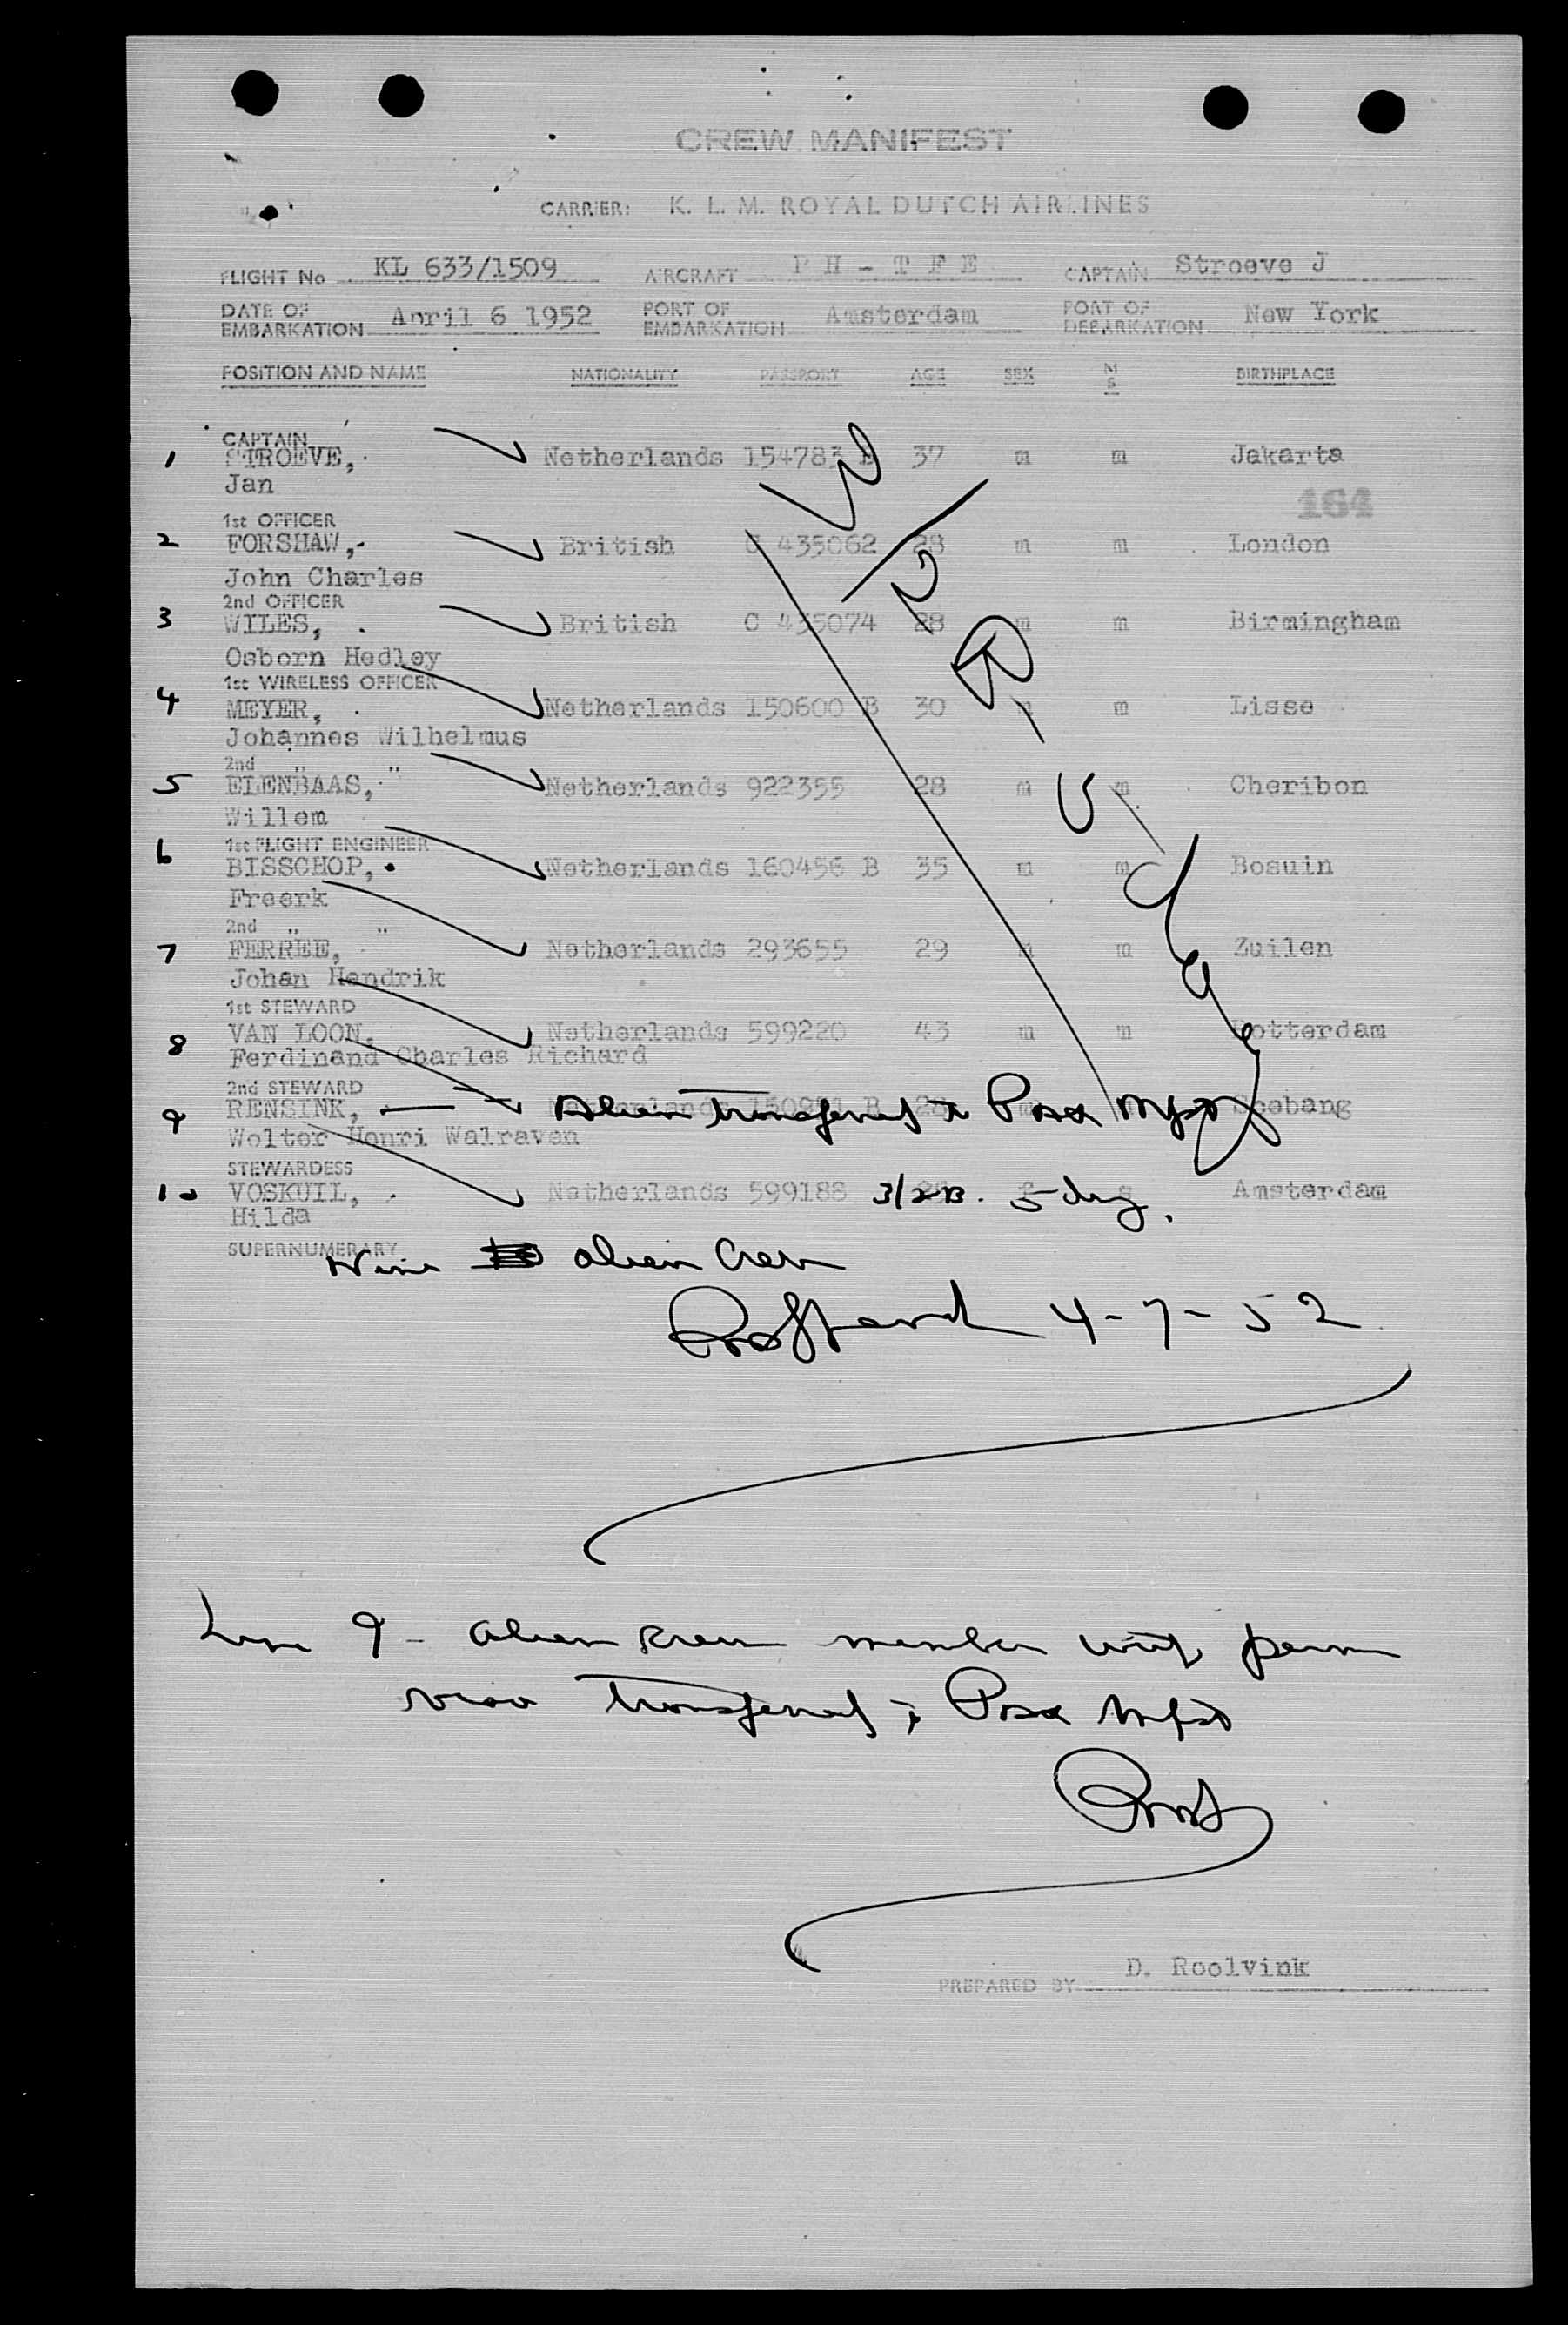 CREW MANIFEST
CARRIER: K. L. M. ROYAL DUTCH AIRLINES
FLIGHT No KL 633/1509 AIRCRAFT PH-TFE CAPTAIN Stroeve J
DATE OF EMBARKATION April 6 1952 PORT OF EMBARKATION Amsterdam PORT OF DEBARKATION New York
POSITION AND NAME NATIONALITY PASSPORT AGE SEX M S BIRTHPLACE
CAPTAIN
1 STROEVE, Netherlands 154783 B 37 m m Jakarta
Jan
164
1st OFFICER
2 FORSHAW, British C 435062 28 m m London
John Charles
2nd OFFICER
3 WILES, British C 435074 28 m m Birmingham
Osborn Hedley
1st WIRELESS OFFICER
4 MEYER, Netherlands 150600 B 30 m m Lisse
Johannes Wilhelmus
2nd " "
5 ELENBAAS, Netherlands 922355 28 m m Cheribon
Willem
1st FLIGHT ENGINEER
6 BISSCHOP, Netherlands 160456 B 35 m m Bosuin
Freerk
2nd " "
7 FERREE, Netherlands 293655 29 m m Zuilen
Johan Hendrik
1st STEWARD
8 VAN LOON, Netherlands 599220 43 m m Rotterdam
Ferdinand Charles Richard
2nd STEWARD
9 RENSINK, Alien transferred to Pass Mfst Soebang
Wolter Henri Walraven
STEWARDESS
10 VOSKUIL, Netherlands 599188 Amsterdam
Hilda
SUPERNUMERARY
Nine alien Crew
4-7-52
Line 9 - alien crew member with perm
visa transferred to Pass Mfst
PREPARED BY D. Roolvink